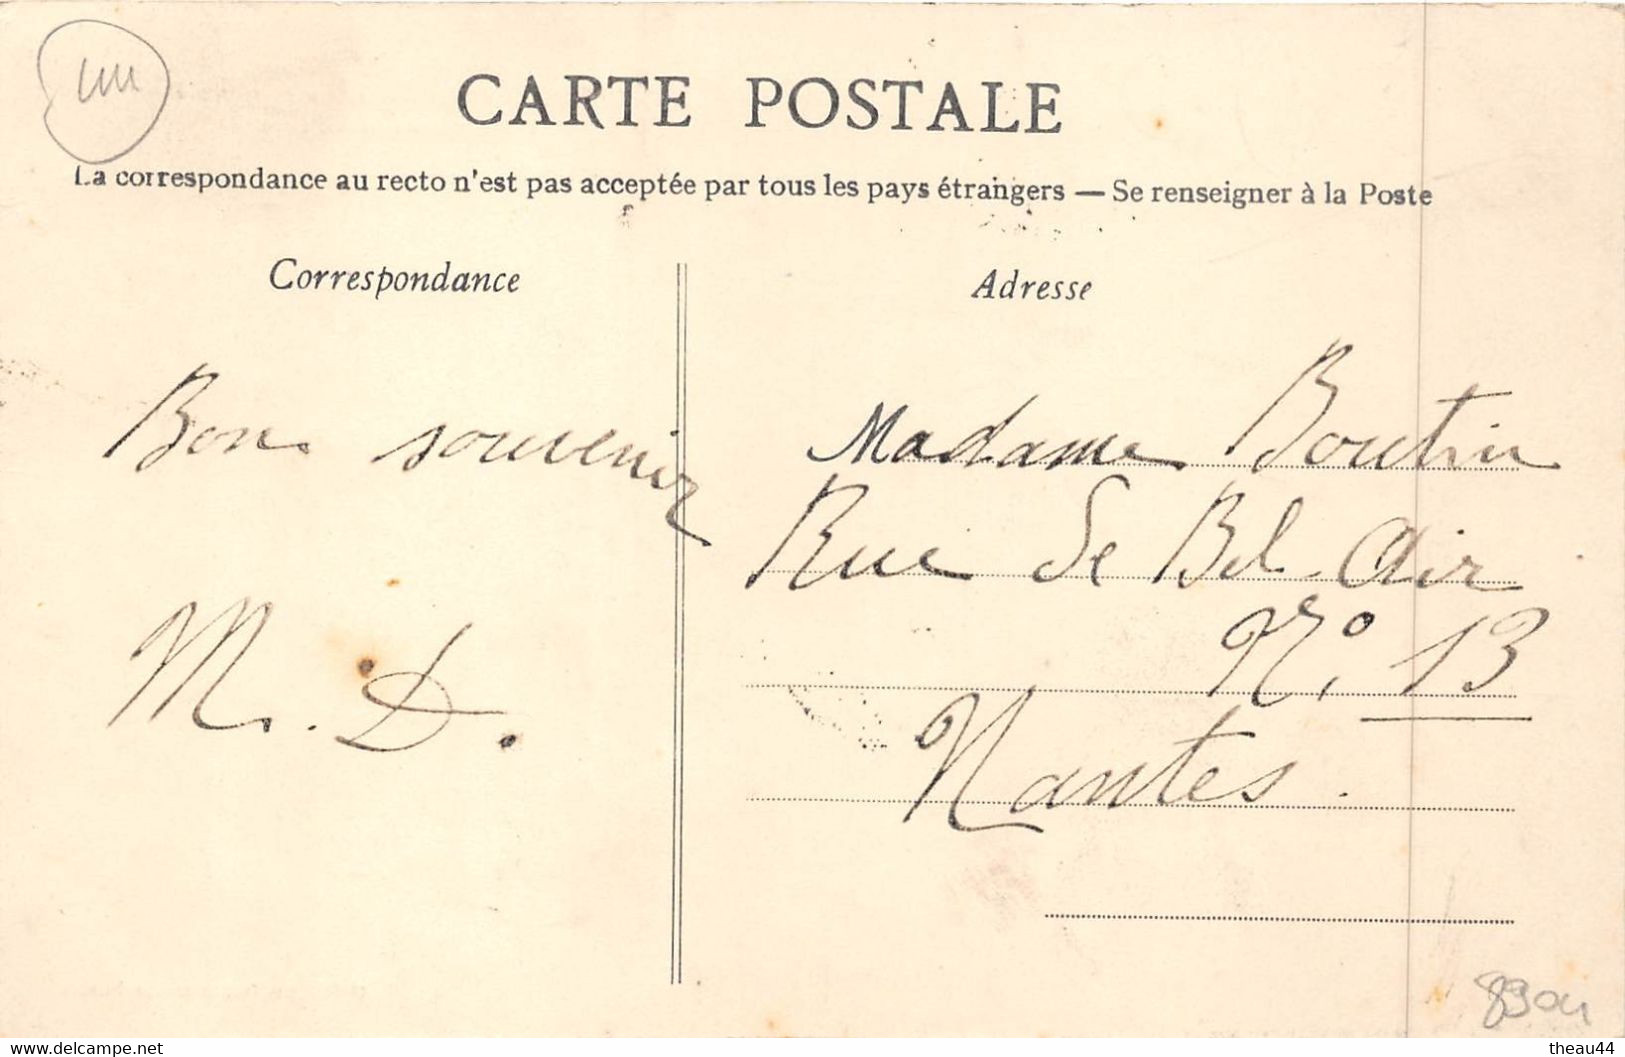 CARTE POSTALE
La correspondance au recto n'est pas acceptée par tous les pays étrangers — Se renseigner à la Poste
Correspondance
Bon souvenir
M. D.
Adresse
Madame Boutin
Rue de Bel Air
No. 13
Nantes.
8904
www.delcampe.net
theau44